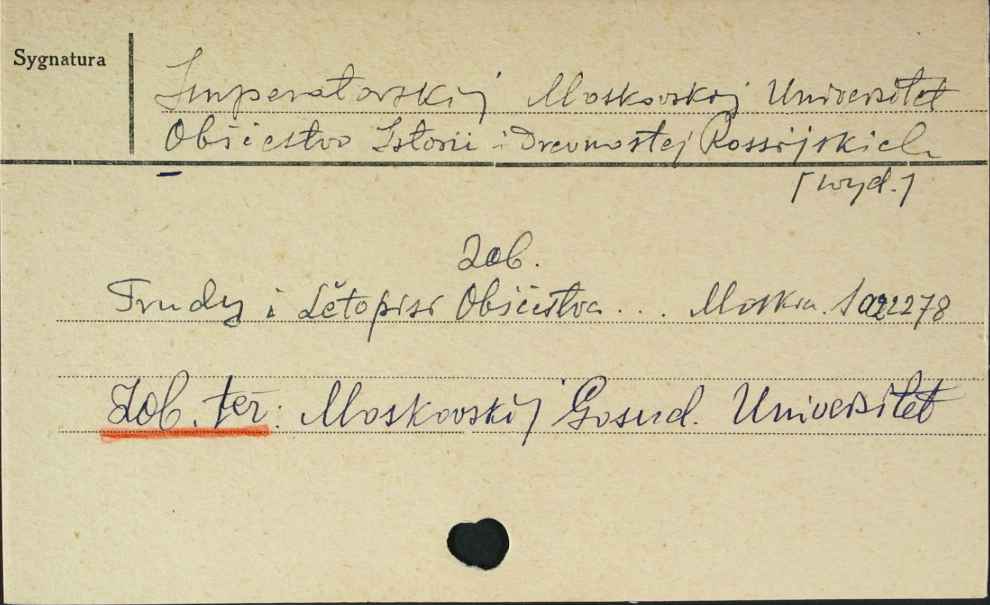 Sygnatura
Imperatorskij Moskovskoj Universitet
Obščestvo Istorii i Drevnostej Rossijskich
[wyd.]
Zob.
Trudy i Lětopisi Obščestva ... Moskva.
Zob. też: Moskovskij Gosud. Universitet